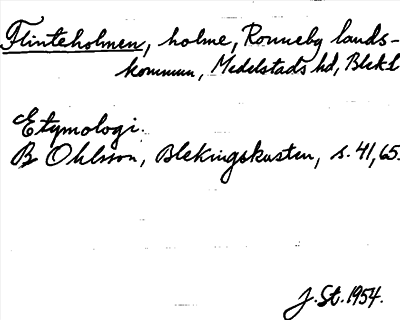 Flinteholmen, holme, Ronneby lands-
kommun, Medelstads hd, Blekl
Etymologi:
B Ohlsson, Blekingskusten, s. 41, 65.
J. St. 1954.